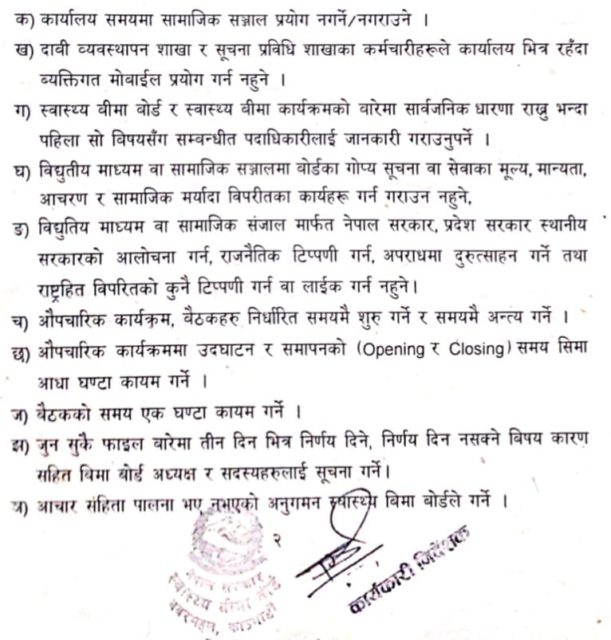 क) कार्यालय समयमा सामाजिक सञ्जाल प्रयोग नगर्ने/नगराउने ।
ख) दाबी व्यवस्थापन शाखा र सूचना प्रविधि शाखाका कर्मचारीहरूले कार्यालय भित्र रहँदा
ब्यक्तिगत मोबाईल प्रयोग गर्न नहुने ।
ग) स्वास्थ्य बीमा बोर्ड र स्वास्थ्य बीमा कार्यक्रमको बारेमा सार्वजनिक धारणा राख्नु भन्दा
पहिला सो विषयसँग सम्बन्धीत पदाधिकारीलाई जानकारी गराउनुपर्ने ।
घ) विद्युतीय माध्यम वा सामाजिक सञ्जालमा बोर्डका गोप्य सूचना वा सेवाका मूल्य, मान्यता,
आचरण र सामाजिक मर्यादा विपरीतका कार्यहरू गर्न गराउन नहुने,
ङ) विद्युतिय माध्यम वा सामाजिक संजाल मार्फत नेपाल सरकार, प्रदेश सरकार स्थानीय
सरकारको आलोचना गर्न, राजनैतिक टिप्पणी गर्न, अपराधमा दुरुत्साहन गर्ने तथा
राष्ट्रहित विपरितको कुनै टिप्पणी गर्न वा लाईक गर्न नहुने।
च) औपचारिक कार्यक्रम, बैठकहरु निर्धारित समयमै शुरु गर्ने र समयमै अन्त्य गर्ने ।
छ) औपचारिक कार्यक्रममा उदघाटन र समापनको (Opening र Closing) समय सिमा
आधा घण्टा कायम गर्ने ।
ज) बैठकको समय एक घण्टा कायम गर्ने ।
झ) जुन सुकै फाइल बारेमा तीन दिन भित्र निर्णय दिने, निर्णय दिन नसक्ने बिषय कारण
सहित बिमा बोर्ड अध्यक्ष र सदस्यहरुलाई सूचना गर्ने।
ञ) आचार संहिता पालना भए नभएको अनुगमन स्वास्थ्य बिमा बोर्डले गर्ने ।
२
कार्यकारी निर्देशक
नेपाल सरकार
स्वास्थ्य बीमा बोर्ड
बबरमहल, काठमाडौं